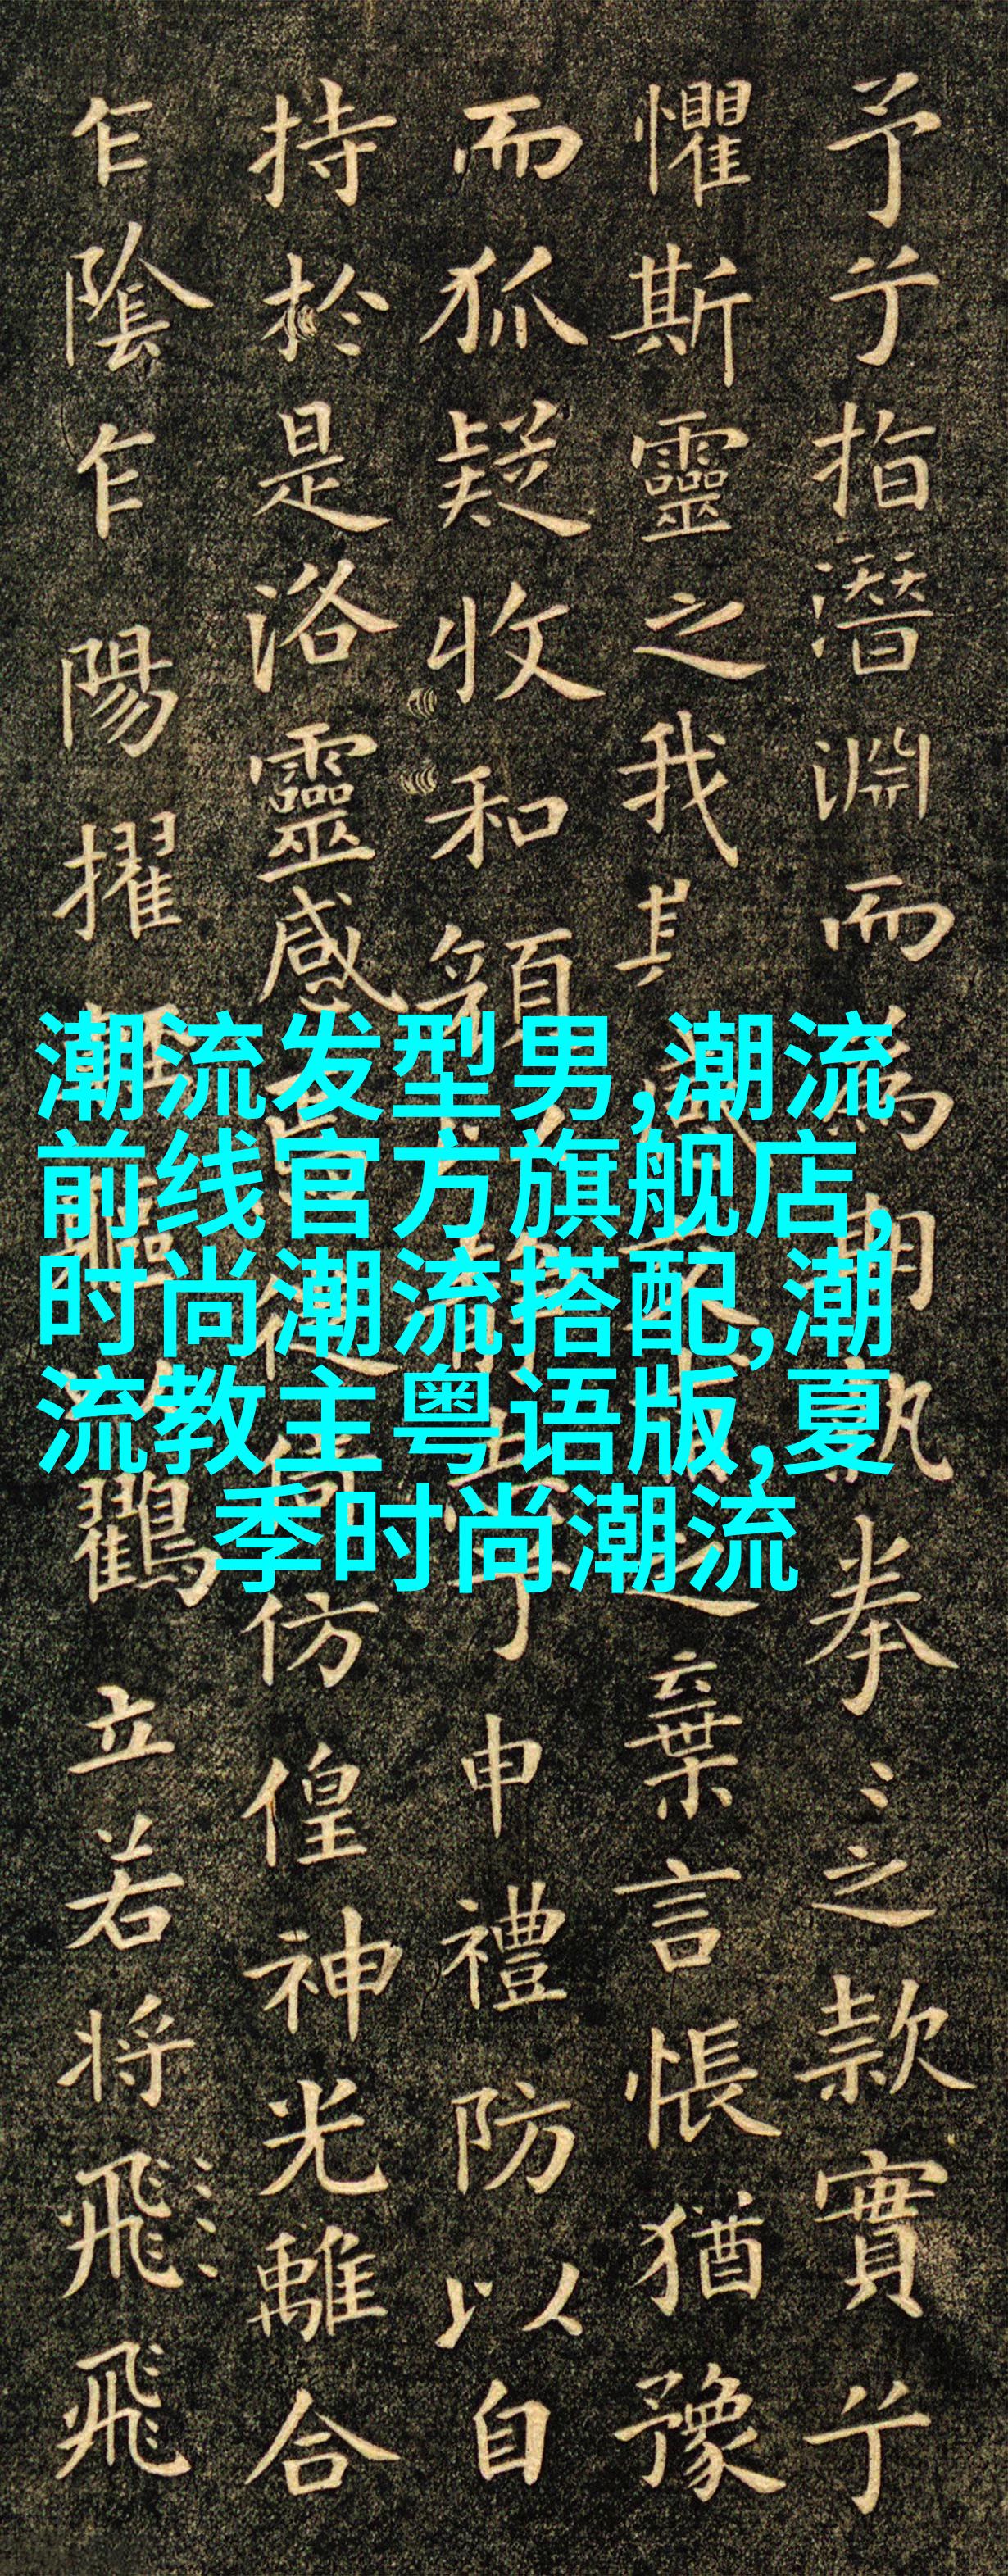 予兮指潛淵而爲期執拳〻之款實兮
懼斯靈之我其之棄言悵猶豫
而狐疑收和顏兮申禮防以自
持於是洛靈感仿偟神光離合
乍陰乍陽擢鶴立若将飛飛
潮流发型男,潮流
前线官方旗舰店,
时尚潮流搭配,潮
流教主粤语版,夏
季时尚潮流